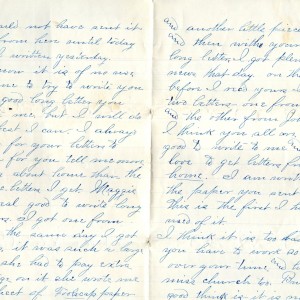 uld not have sent it
from here until today
I written yesterday.
now it is of no use
me to try to write you
good long letter you
me, but I will do
best I can. I always
for your letters
for you tell me more
about home than the
letters I get. Maggie
real good to write long
I got one from
the same day I got
it was such a large
she had to pay extra
on it she wrote me
sheet of Foolscap paper
and another little piece
and then with your
long letter, I got plenty
news that day. on
before I rec'd yours I
two letters one from
and the other from Jo
I think you all are
good to write to me and
love to get letters from
home. I am
the paper you sent
This is the first I
used of it.
I think it is too
you have to work as
over your time and
miss church to. The
good think is it is